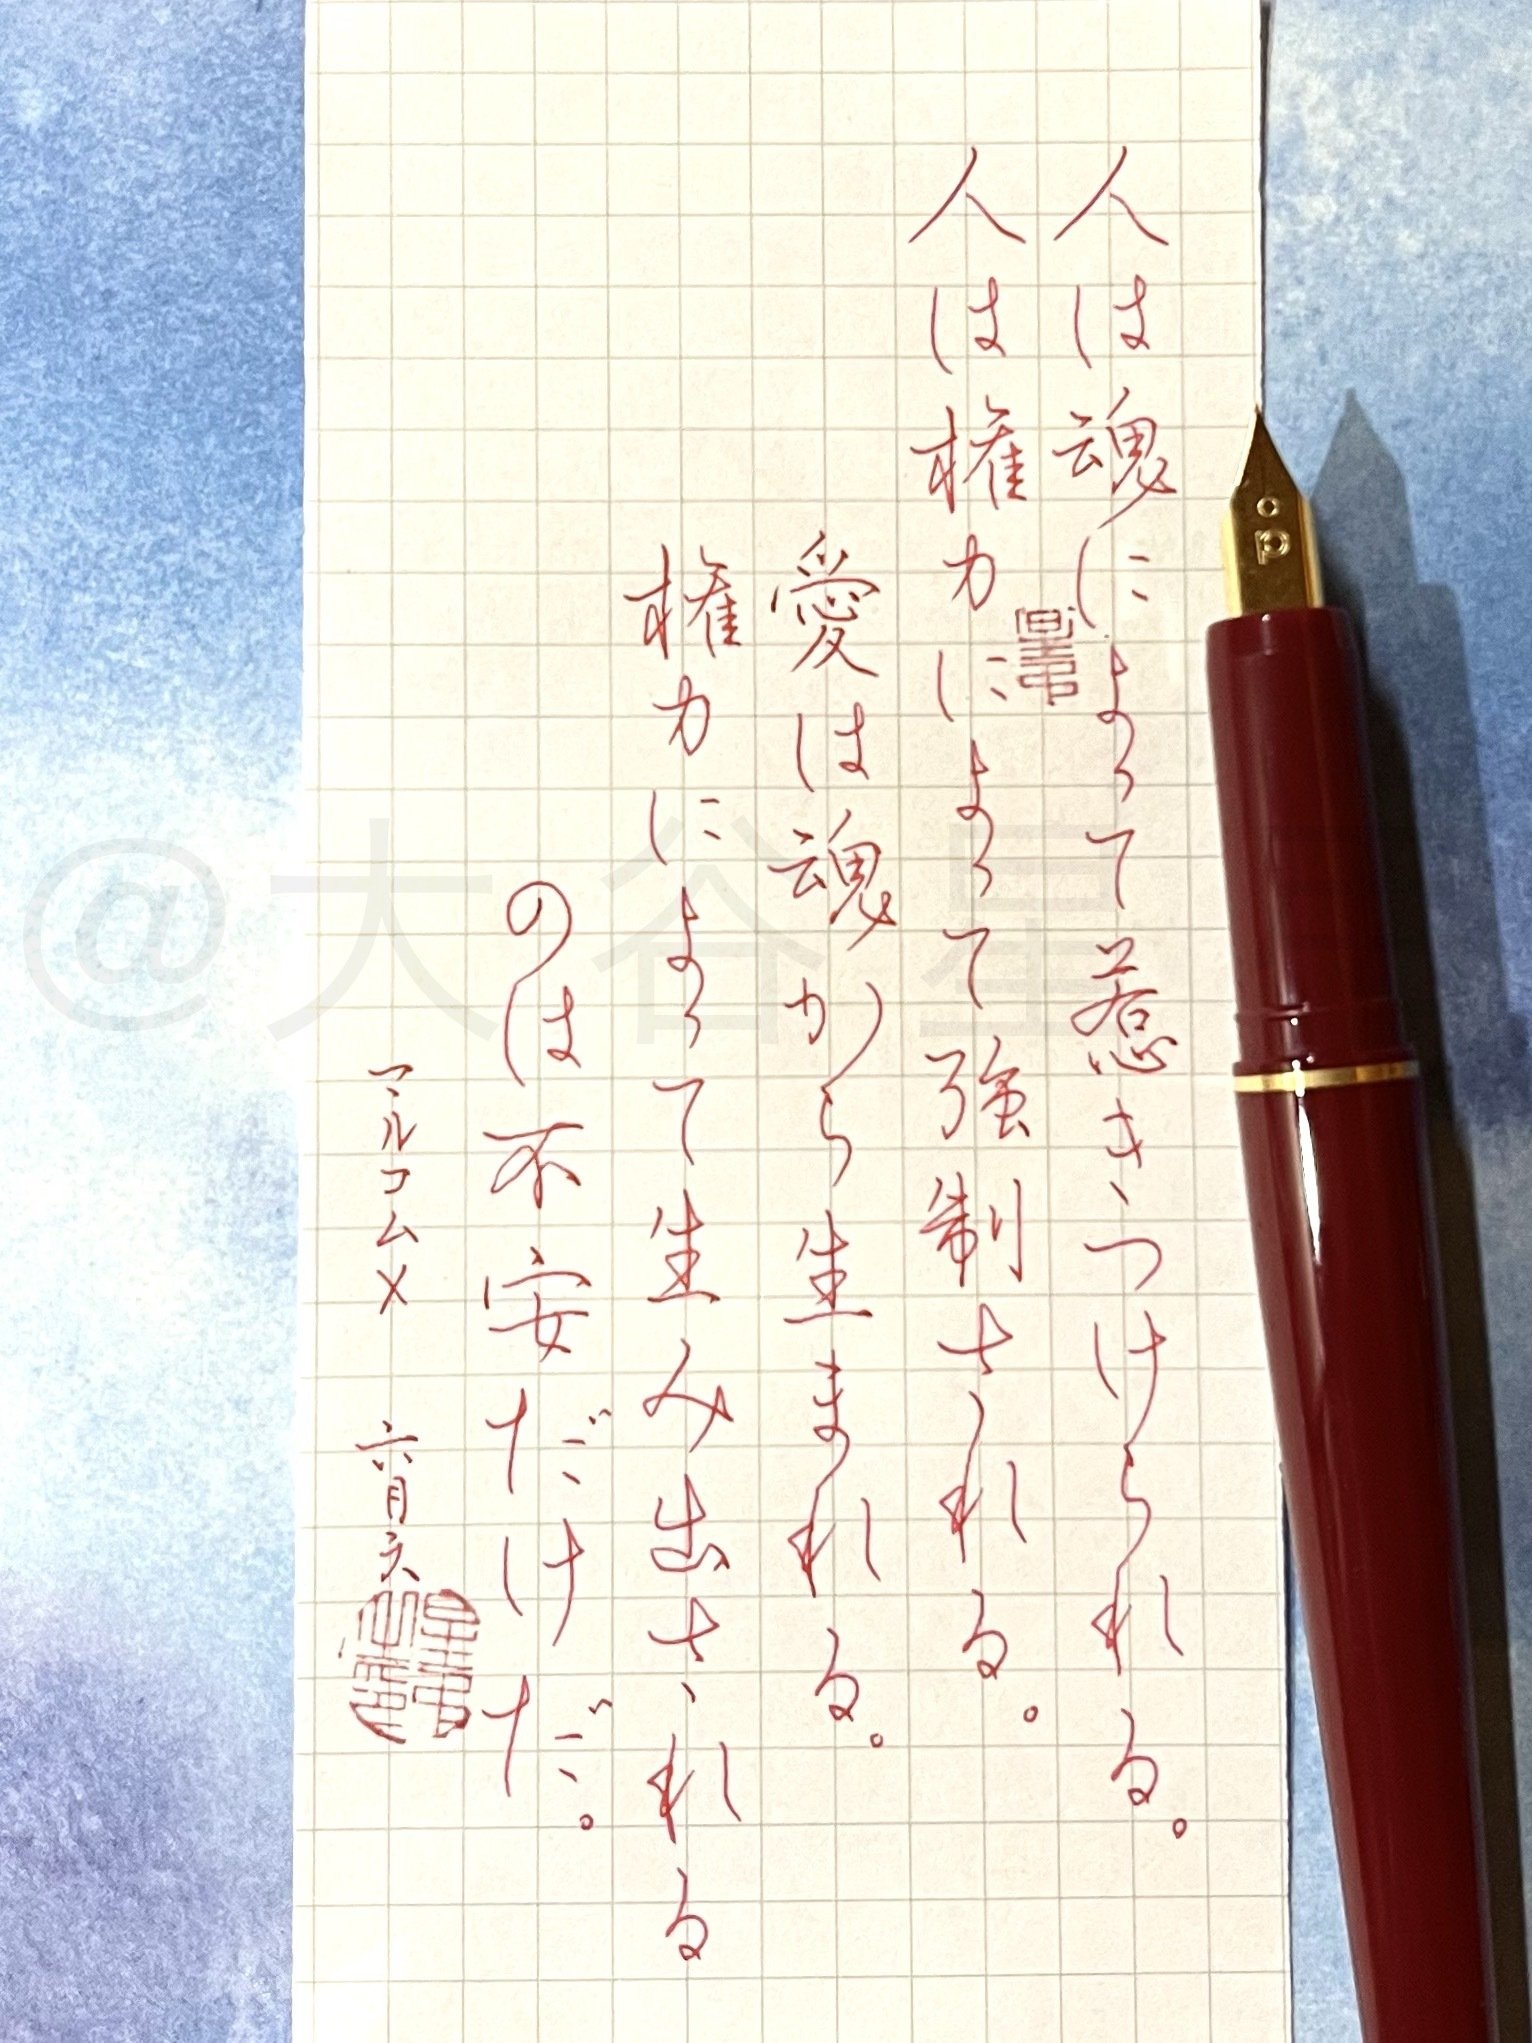 人は魂によって惹きつけられる。
人は権力によって強制される。
愛は魂から生まれる。
権力によって生み出される
のは不安だけだ。
マルコムX 六月六
@大谷星